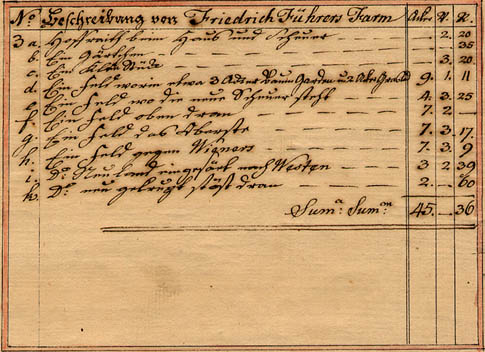 No. Beschreibung von Friedrich Führers Farm Acker V. R.
3 a. Hoffreith beim Haus und Scheuer — 2. 20
b. Ein Gärtchen — — — — — 35
c. Ein — — — — 3. 20
d. Ein Feld worin etwa 3 Acker Baum Garden u. 2 Acker 9. 1. 11
e. Ein Feld wo die neue Scheuer steht — 4. 3. 25
f. Ein Feld oben dran — — — — 7. 2. —
g. Ein Feld das Oberste — — — — 7. 3. 17.
h. Ein Feld gegen Wigners — — — 7. 3. 9
i. Do. Neu Land nach Westen — 3 2 39
k. Do. neu stößt dran — — — 2. — 60
Suma. Sumam. 45. — 36